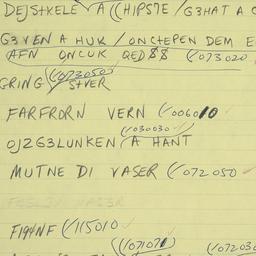 DEJSTKELE A (CHIPSTE / G3HAT A C
G3VEN A HUK / ONCTEPEN DEM E
AFN ONCUK QED88 (073020
(073050)
GRING / STVER
FARFRORN VERN (006010
(030030
OJ2G3LUNKEN (A HANT
MUTNE DI VASER (072050
F194NF (115010
(071071) (07203